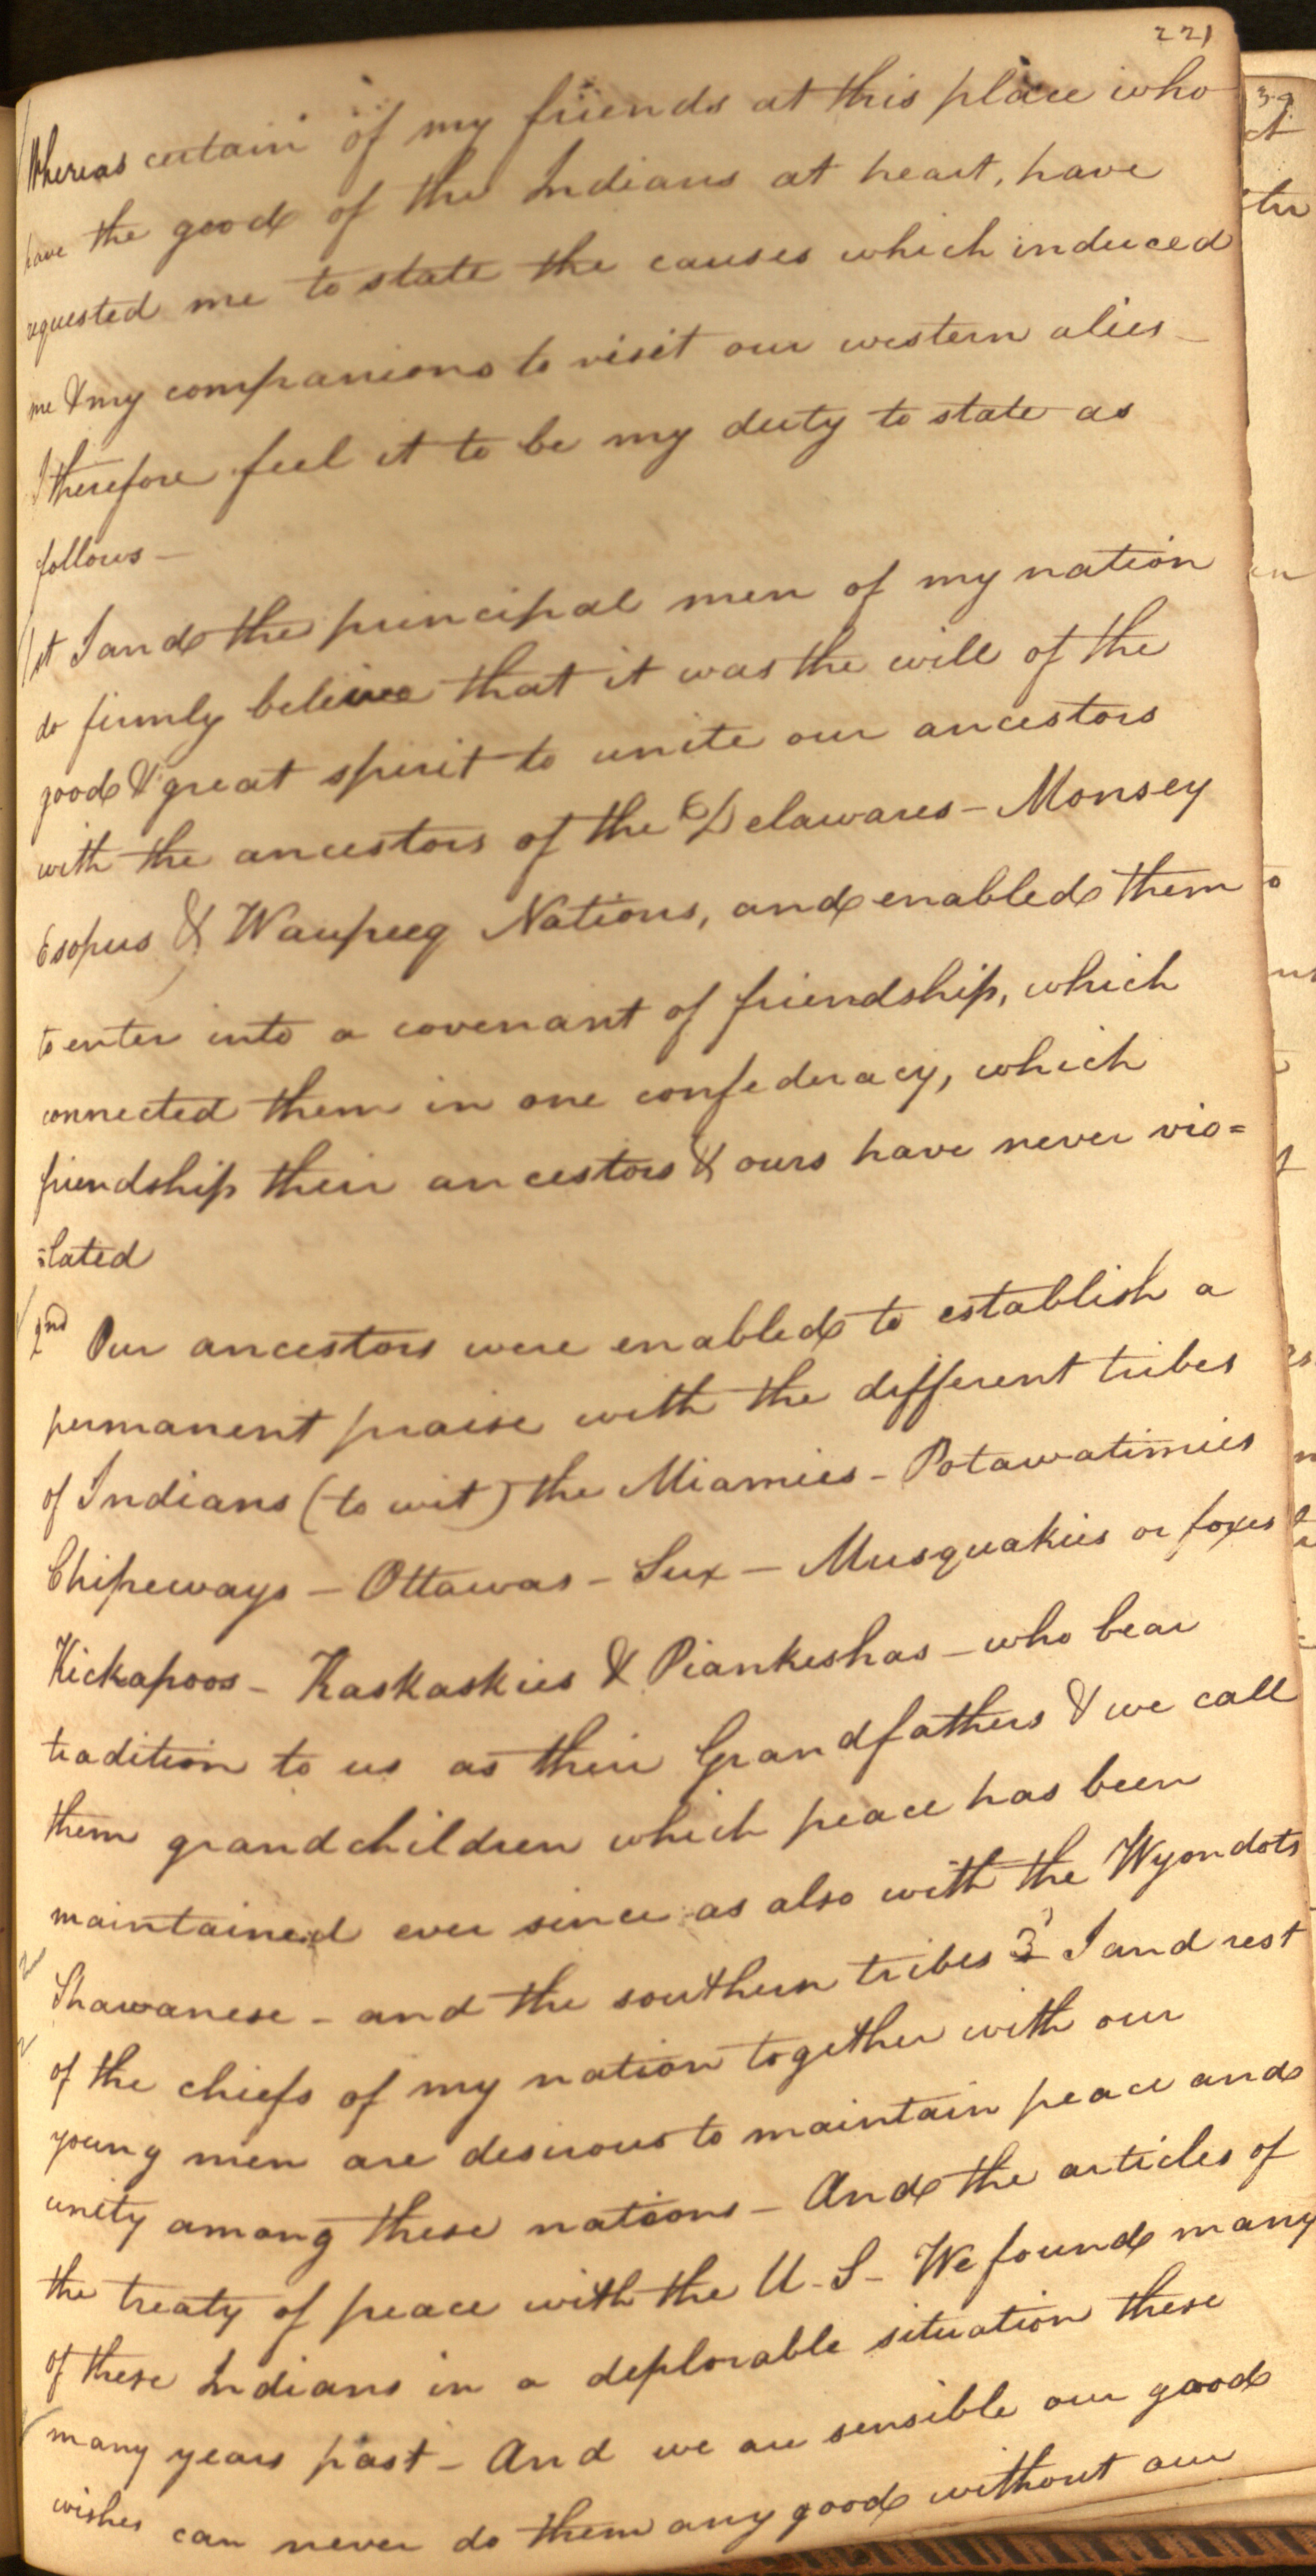 221
Whereas certain of my friends at this place who
have the good of the Indians at heart, have
requested me to state the causes which induced
me & my companions to visit our western alies
I therefore feel it to be my duty to state as
follows —
1st I and the principal men of my nation
do firmly believe that it was the will of the
good & great spirit to unite our ancestors
with the ancestors of the Delawares — Monsey
Esopus & Waupeeg Nations, and enabled them
to enter into a covenant of friendship, which
connected them in one confederacy, which
friendship their ancestors & ours have never vio=
=lated
2nd Our ancestors were enabled to establish a
permanent praise with the different tribes
of Indians (to wit) the Miamies - Potawatimies
Chipeways — Ottawas — Sux — Musquakies or foxes
Kickapoos — Kaskaskies & Piankeshas — who bear
tradition to us as their Grandfathers & we call
them grandchildren which peace has been
maintained ever since as also with the Wyondots
Shawanese - and the southern tribes 3 I and rest
of the chiefs of my nation together with our
young men are desirous to maintain peace and
unity among these nations — And the articles of
the treaty of peace with the U. S — We found many
of these Indians in a deplorable situation these
many years past — And we are sensible our good
wishes can never do them any good without our